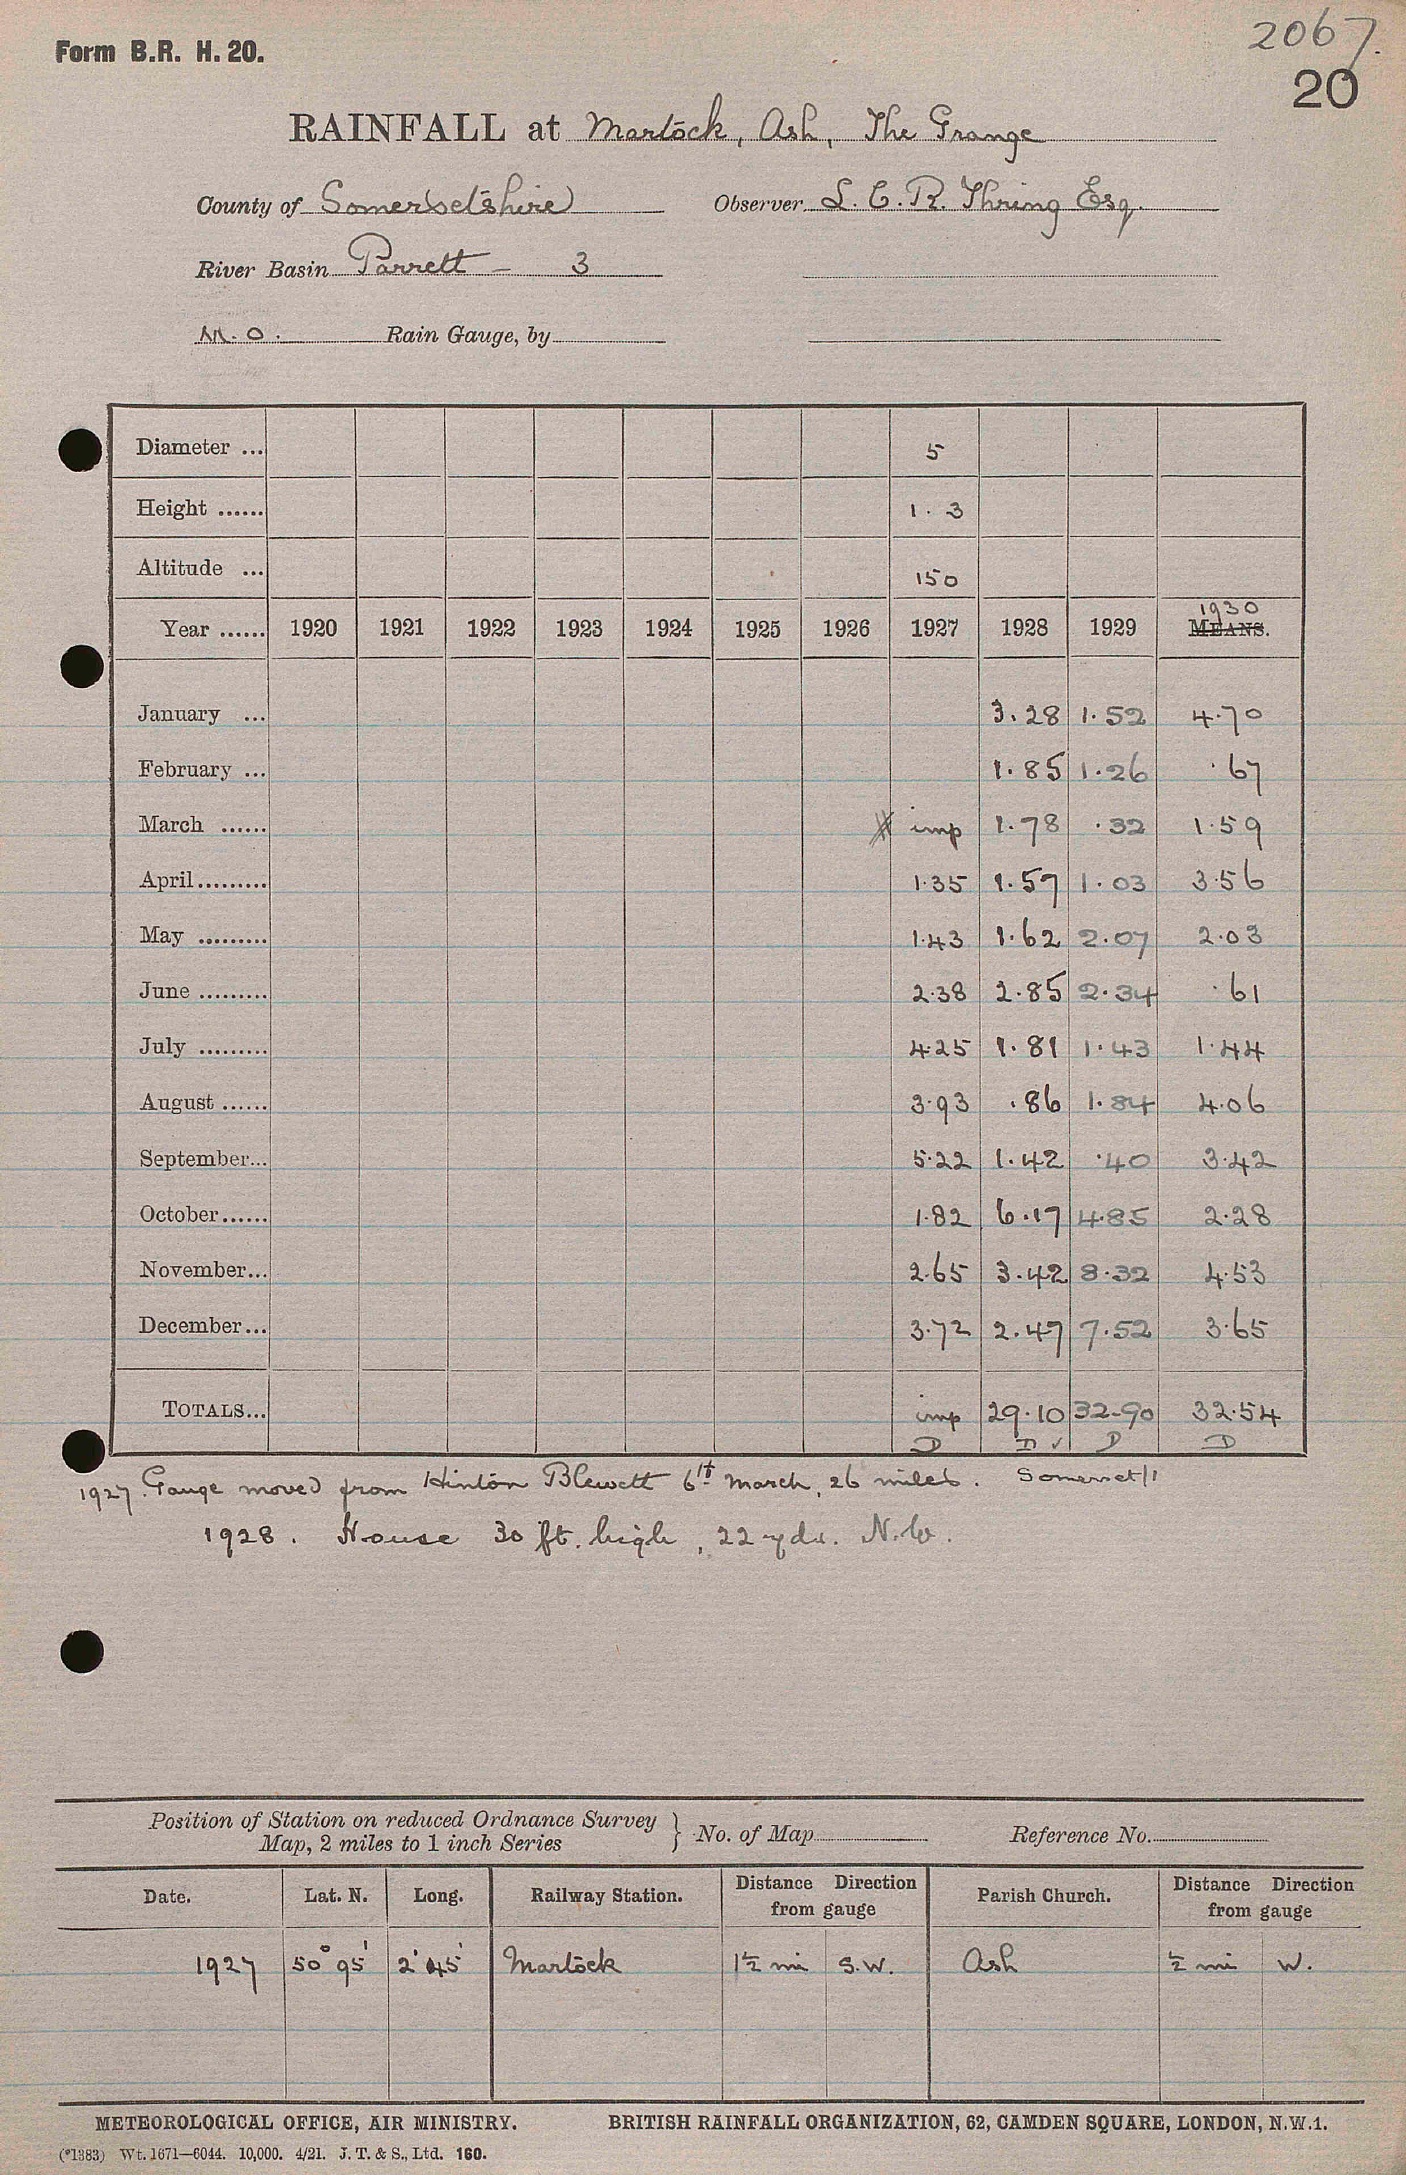 Form B.R. H. 20.
2067.
20
RAINFALL at Martock, Ash, The Grange
County of Somersetshire Observer L. C. R. Thring Esq.
River Basin Parrett - 3
M. O. Rain Gauge, by
Diameter ... 5
Height ...... 1. 3
Altitude ... 150
1930
Year ...... 1920 1921 1922 1923 1924 1925 1926 1927 1928 1929 MEANS.
January ... 3.28 1.52 4.70
February ... 1.85 1.26 .67
March ...... imp 1.78 .32 1.59
April ......... 1.35 1.57 1.03 3.56
May ......... 1.43 1.62 2.07 2.03
June ......... 2.38 2.85 2.34 .61
July ......... 4.25 1.81 1.43 1.44
August ...... 3.93 .86 1.84 4.06
September... 5.22 1.42 .40 3.42
October...... 1.82 6.17 4.85 2.28
November... 2.65 3.42 8.32 4.53
December... 3.72 2.47 7.52 3.65
TOTALS... imp 29.10 32.90 32.54
D D ✓ D D
1927. Gauge moved from Hinton Blewett 6th March, 26 miles. Somerset/1
1928. House 30 ft. high, 22 yds. N.W.
Position of Station on reduced Ordnance Survey
Map, 2 miles to 1 inch Series } No. of Map Reference No.
Date. Lat. N. Long. Railway Station. Distance Direction from gauge Parish Church. Distance Direction from gauge
1927 50° 95' 2' 45' Martock 1½ mi S.W. Ash ½ mi W.
METEOROLOGICAL OFFICE, AIR MINISTRY. BRITISH RAINFALL ORGANIZATION, 62, CAMDEN SQUARE, LONDON, N.W.1.
(*1383) Wt. 1671—6044. 10,000. 4/21. J. T. & S., Ltd. 160.